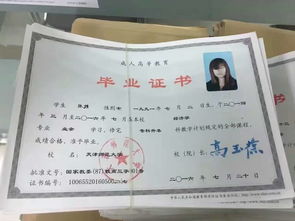 成人高等教育
毕业证书
学生 性别 女 一九九一年 七 月 二 日生，于二〇一四
年 三 月至二〇一六 年 七 月在本校 经济学
专业 业余 学习，修完 科教学计划规定的全部课程，
成绩合格，准予毕业。
校 名：天津师范大学 校（院）长：高玉葆
批准文号：国家教委(87)教高三字
证书编号：
二〇一六 年 七 月 二十 日